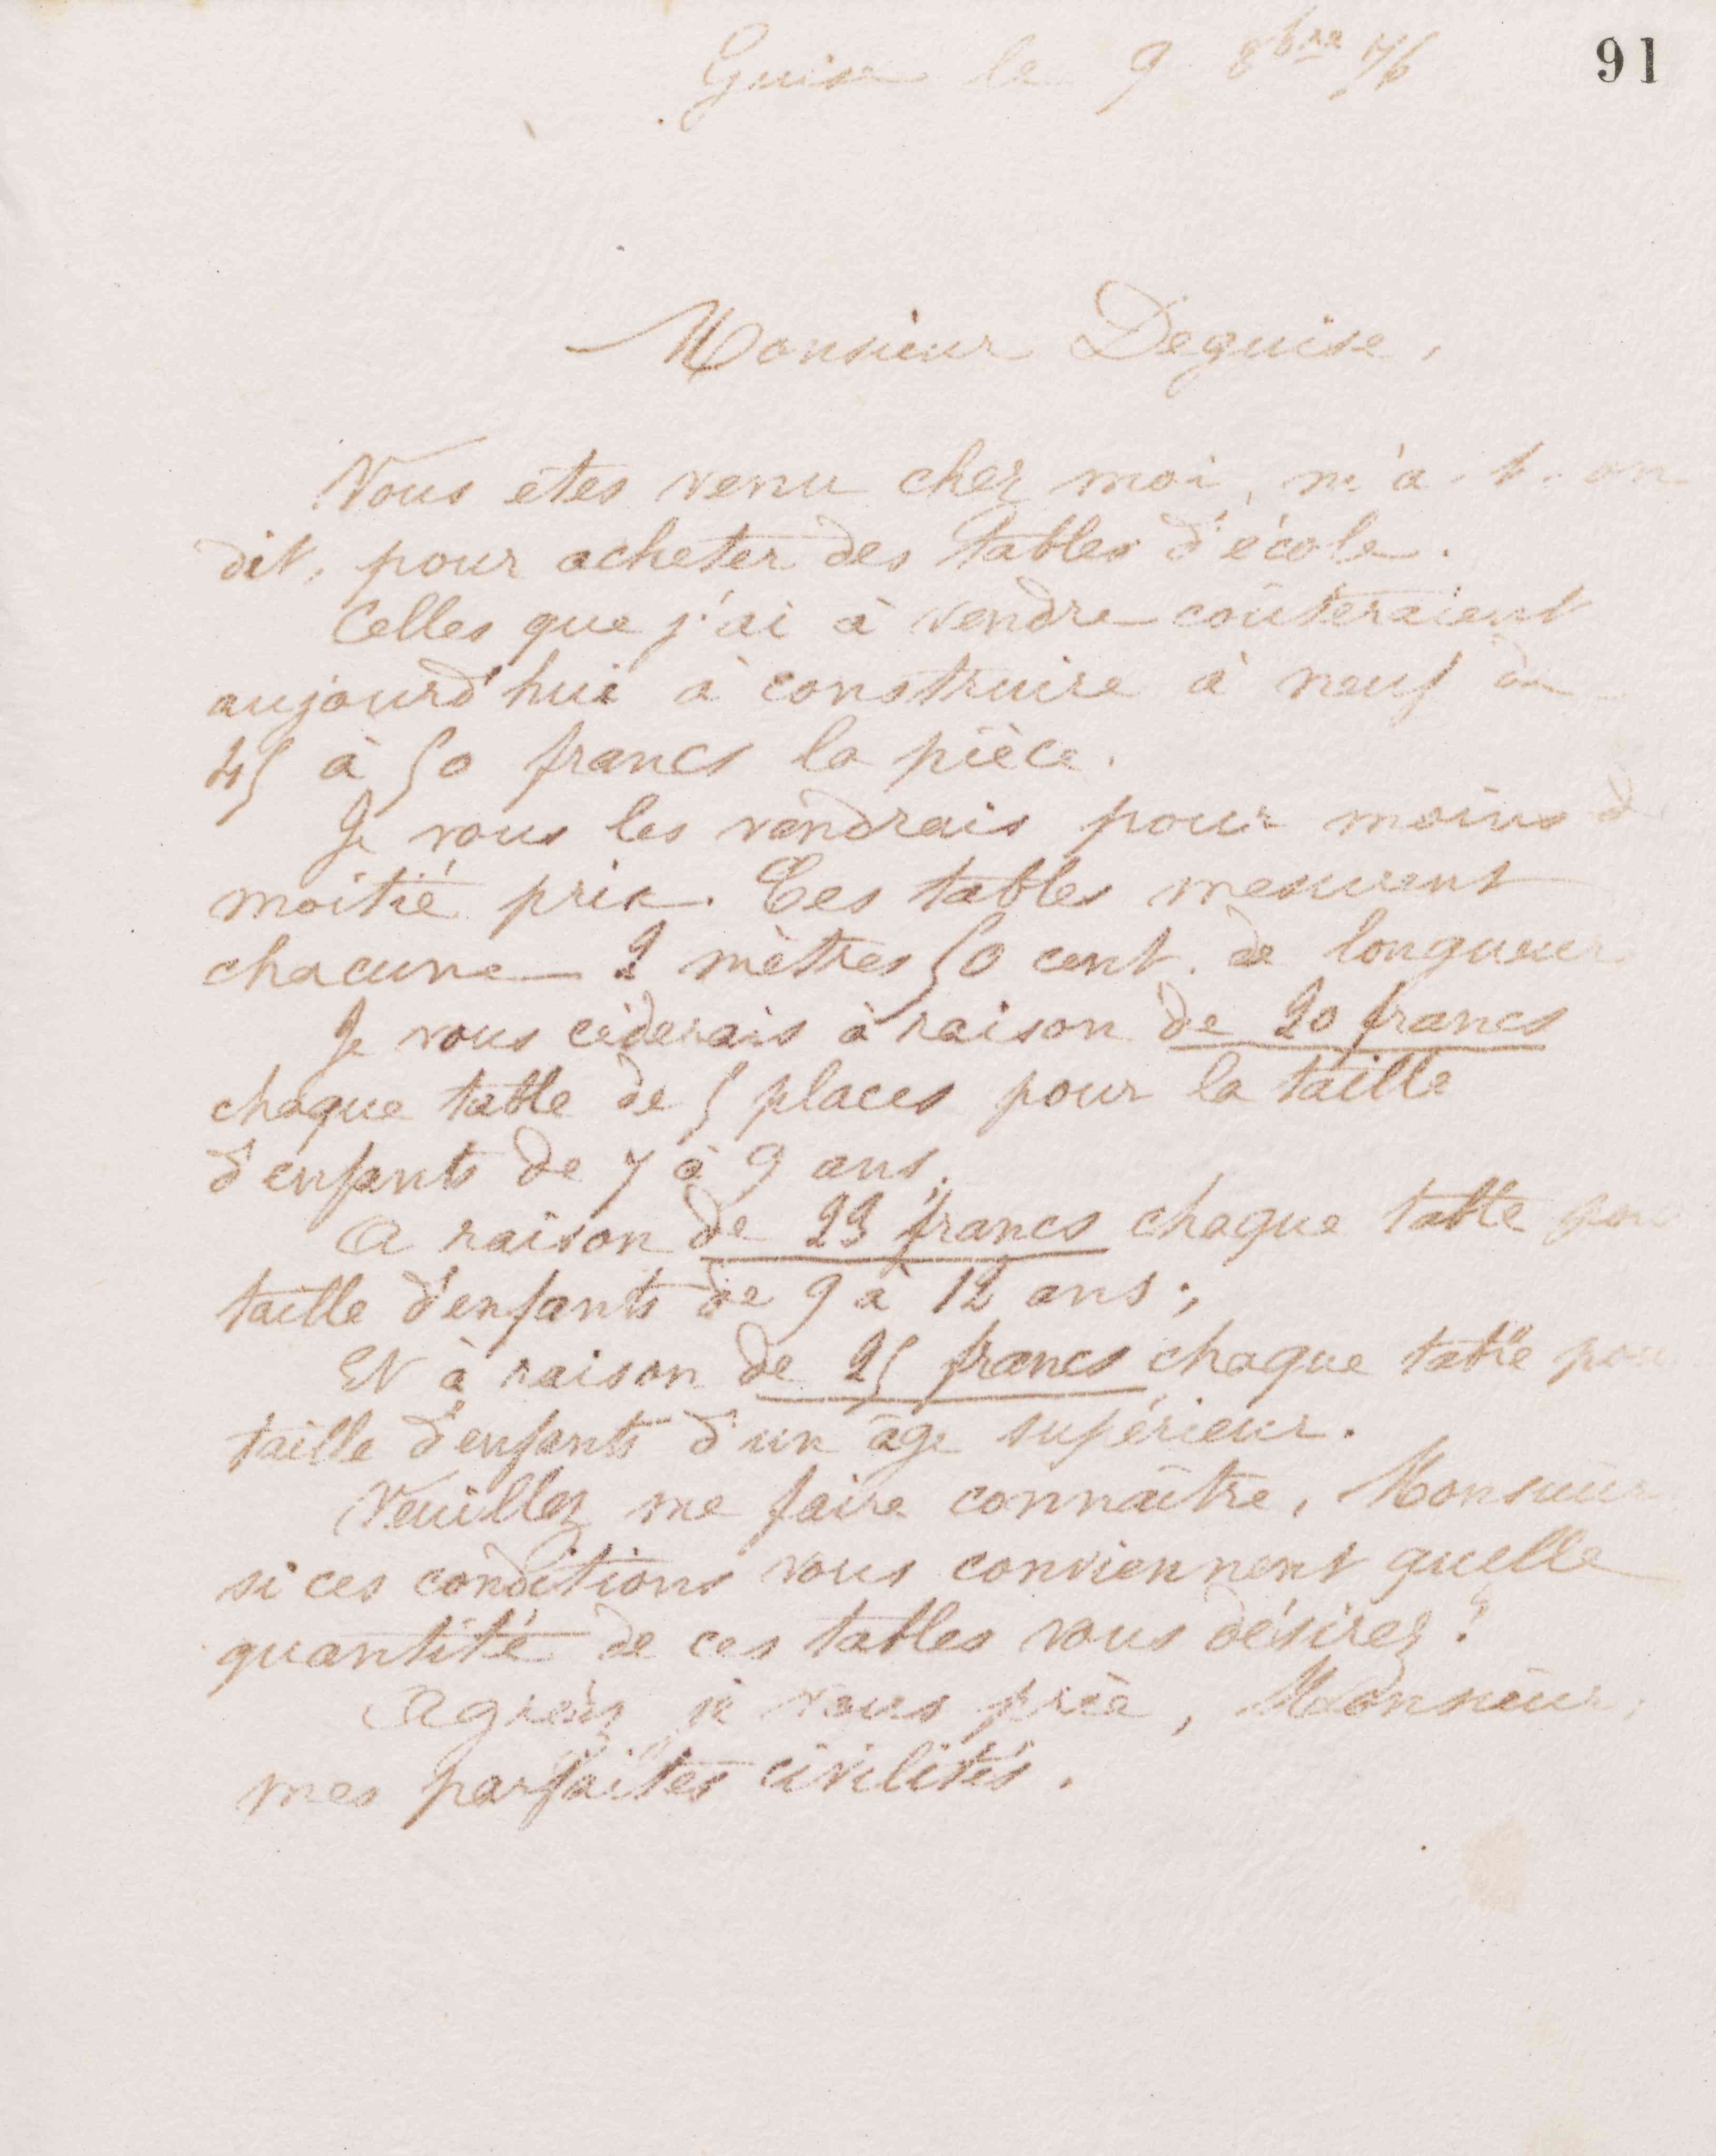 91
Guise le 9 8bre 76
Monsieur Deguise,
Vous êtes venu chez moi, m'a-t-on
dit, pour acheter des tables d'école.
Celles que j'ai à vendre coûteraient
aujourd'hui à construire à neuf
45 à 50 francs la pièce.
Je vous les vendrais pour moins d
moitié prix. Ces tables mesurent
chacune 2 mètres 50 cent. de longueur
Je vous céderais à raison de 20 francs
chaque table de 5 places pour la taille
d'enfants de 7 à 9 ans;
A raison de 23 francs chaque table pou
taille d'enfants de 9 à 12 ans;
Et à raison de 25 francs chaque table pou
taille d'enfants d'un âge supérieur.
Veuillez me faire connaître, Monsieur
si ces conditions vous conviennent quelle
quantité de ces tables vous désirez?
Agréez je vous prie, Monsieur,
mes parfaites civilités.